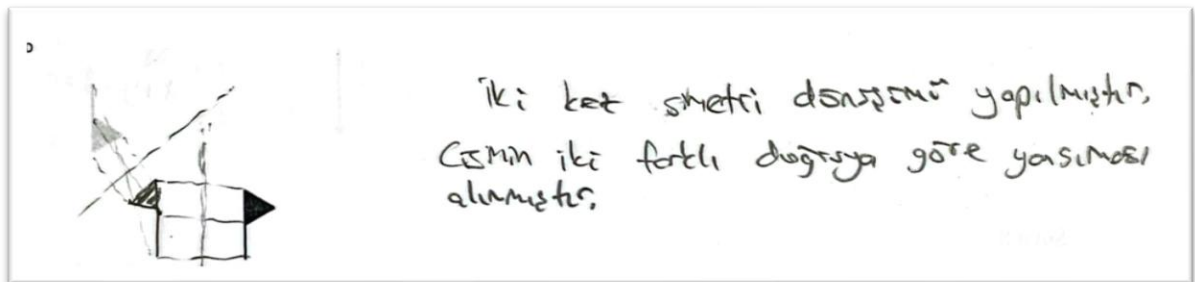 iki kez simetri dönüşümü yapılmıştır.
Cismin iki farklı doğruya göre yansıması
alınmıştır.